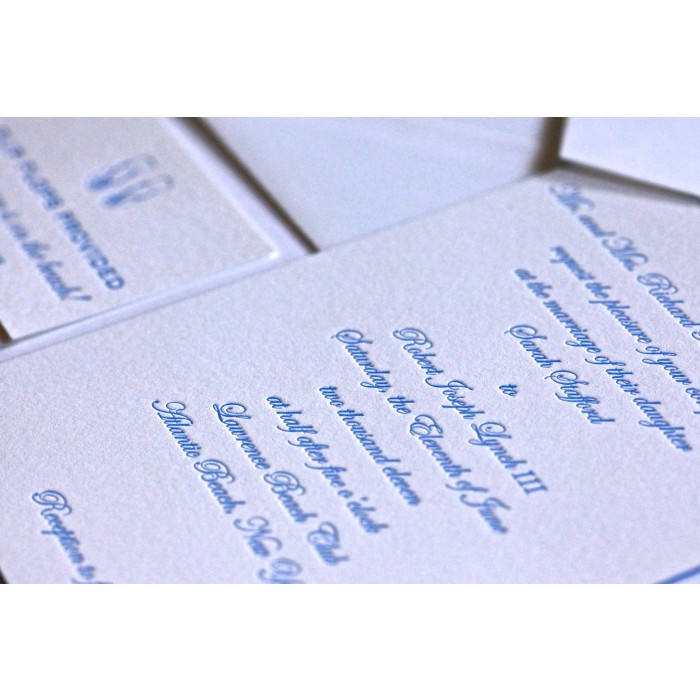 Mr. and Mrs. Richard
request the pleasure of your
at the marriage of their daughter
Sarah Stafford
to
Robert Joseph Lynch III
Saturday, the Eleventh of June
two thousand eleven
at half after five o'clock
Lawrence Beach Club
Atlantic Beach, New
Reception to
FLIP FLOPS PROVIDED
on the beach!